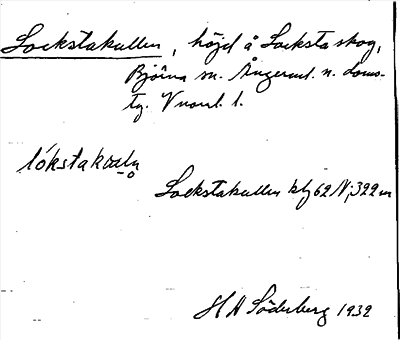 Lockstakullen, höjd å Locksta skog,
Björna sn. Ångerml. n. doms-
tg. Vnorrl. l.
Lockstakullen kbl 62 N; 322 m
H A Söderberg 1932